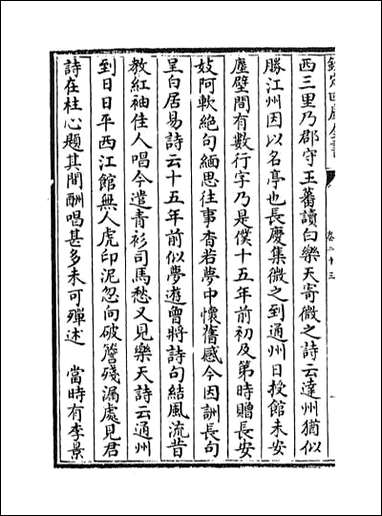 欽定四庫全書
卷二十三
西三里乃郡守王蕃讀白樂天寄微之詩云達州猶似
勝江州因以名亭也長慶集微之到通州日授館未安
塵壁間有數行字乃是僕十五年前初及第時贈長安
妓阿軟絕句緬思往事杳若夢中懷舊感今因詶長句
呈白居易詩云十五年前似夢遊曾將詩句結風流昔
教紅袖佳人唱今遣青衫司馬愁又見樂天詩云通州
到日日平西江館無人虎印泥忽向破簷殘漏處見君
詩在柱心題其間酬唱甚多未可殫述　當時有李景